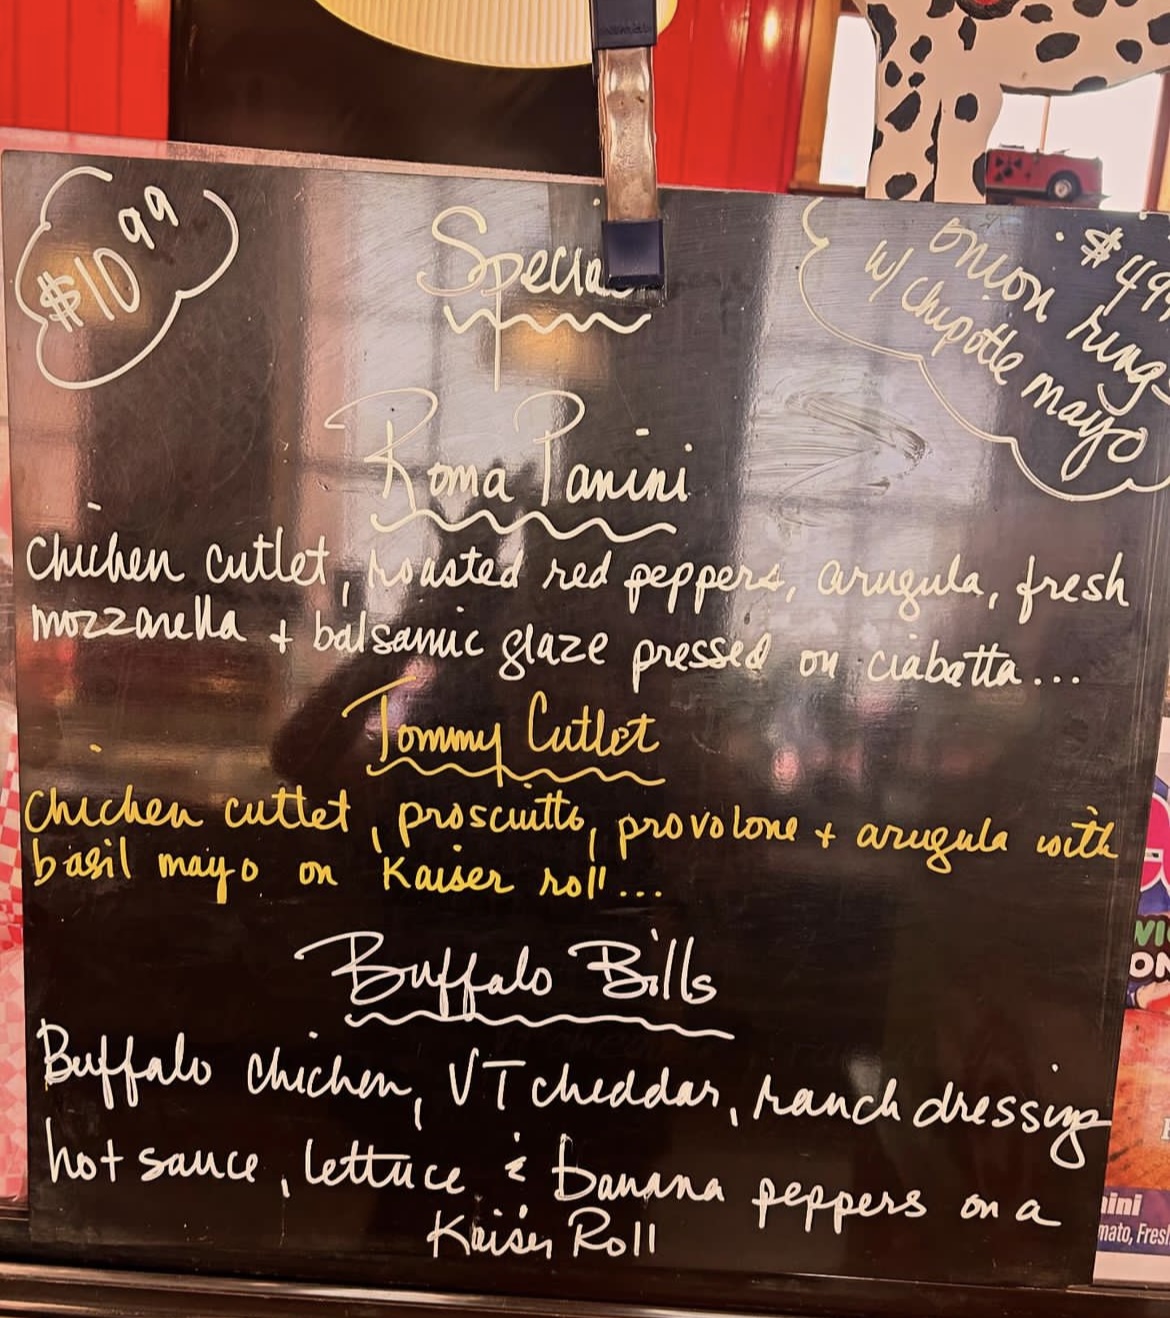 $10 99
Special
$4 99
onion rings
w/ chipotle mayo
Roma Panini
Chicken cutlet, roasted red peppers, arugula, fresh
mozzarella + balsamic glaze pressed on ciabatta...
Tommy Cutlet
Chicken cutlet, prosciutto, provolone + arugula with
basil mayo on Kaiser roll...
Buffalo Bills
Buffalo chicken, VT cheddar, ranch dressing
hot sauce, lettuce & banana peppers on a
Kaiser Roll